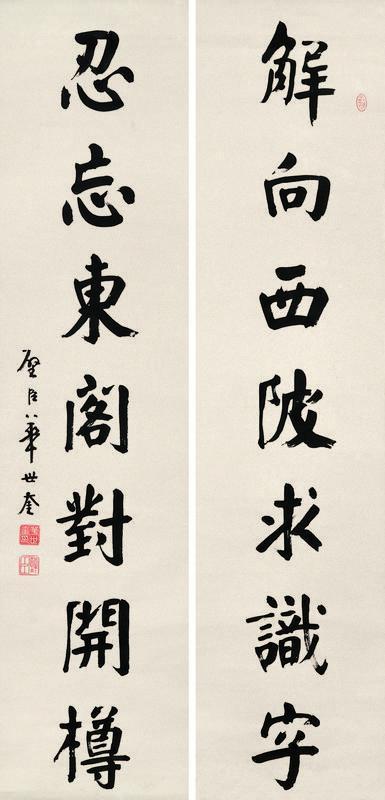 解向西陂求識字
忍忘東閣對開樽
璧臣華世奎